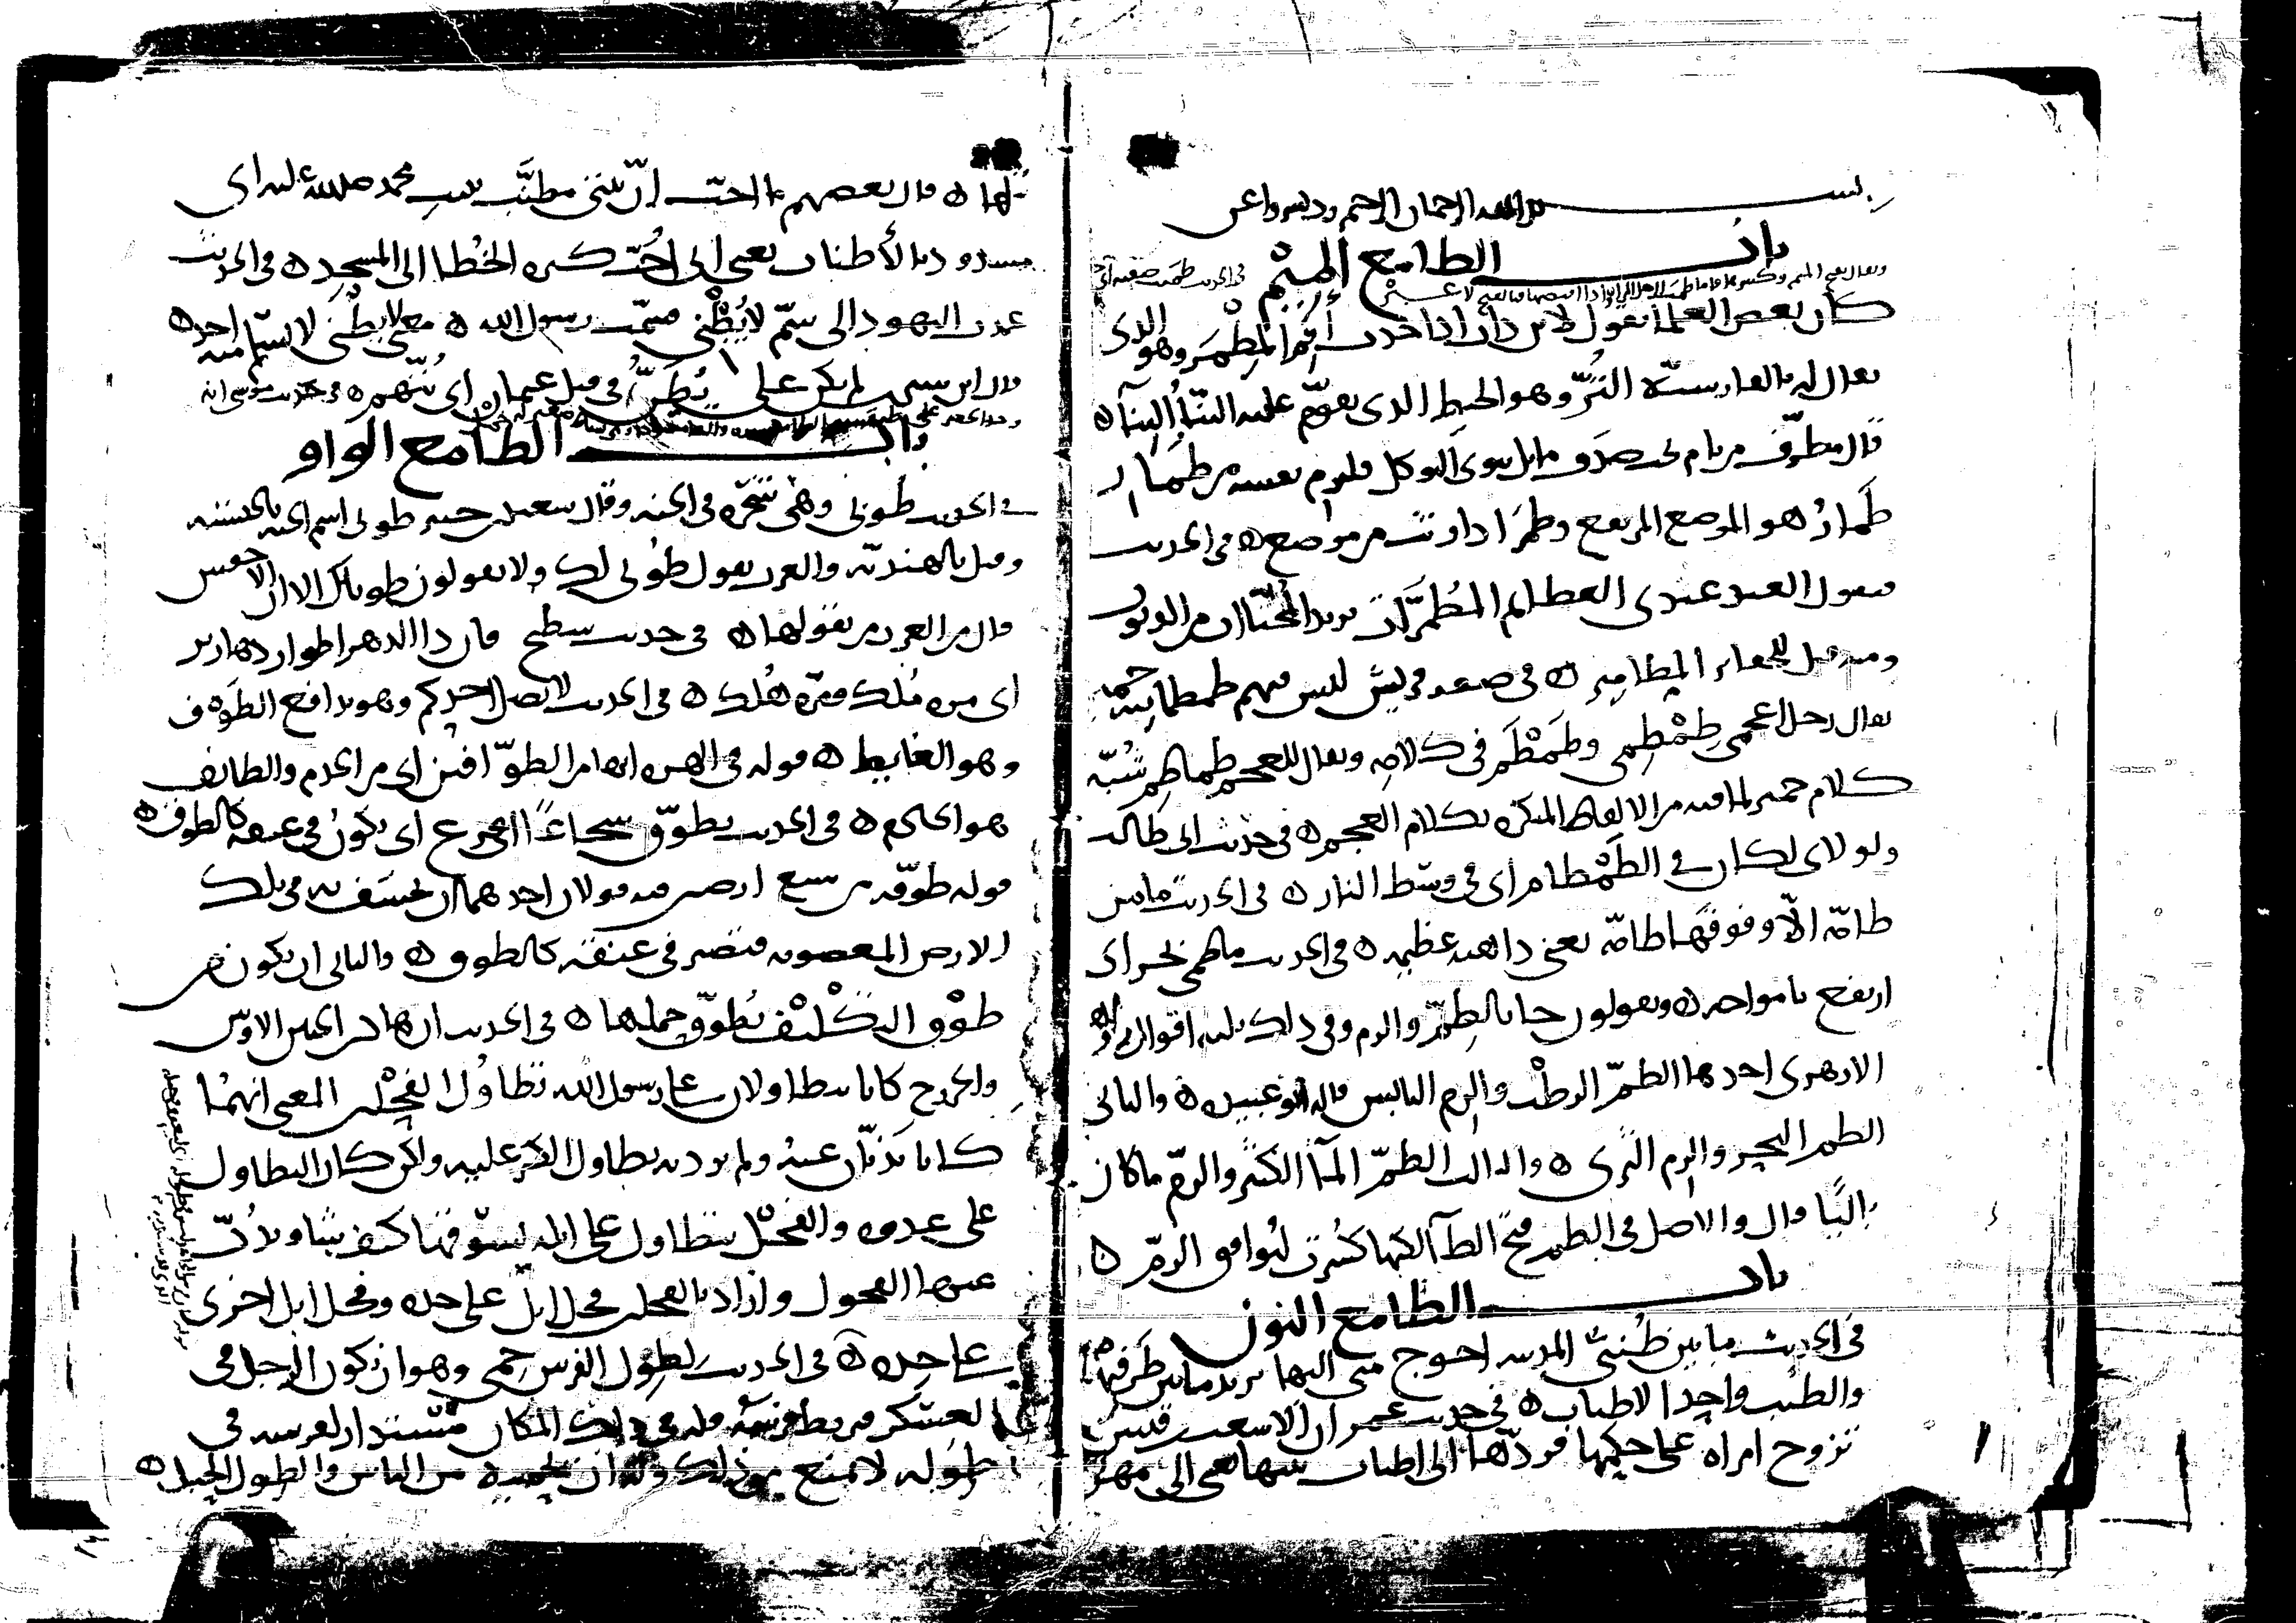 بسم الله الرحمان الرحيم رب يسر واعن
باب الطا مع الميم
كان بعض العلما يقول لابن دأب اذا حدث أقم المِطْمَر وهو الذى
يقال له بالفارسيّة التُرّ وهو الخيط الذى يقوّم عليه البنّاُ البِنآ ه
قال مطرّف من نام تحت صدف مايل ينوى التوكل فليرم نفسه من طمار
طَمارُ هو الموضع المرتفع وطمرَ اذا وثب من موضع ه فى الحديث
فيقول العبد عندى العظايم المُطمَّرَات يريد المُخبّاات من الذنوب
ومنه قيل للحفاير المطامير ه فى صفه قريش ليس فيهم طمطمانيّة حمير
يقال رجل اعجمى طِمْطِمى وطَمْطَم فى كلامه ويقال للعجم طماطِم شُبّه
كلام حمير لما فيه من الالفاظ المنكره بكلام العجم ه فى حديث ابى طالب
ولولاى لكان فى الطَمْطام اى فى وسَط النار ه فى الحديث ما من
طامّة الاّ وفوقَها طامّة يعنى داهيه عظيمه ه فى الحديث ما طمى بحر اى
ارتفع بامواجه ه ويقولون جا بالطِمّ والرم وفى ذلك ثلثه اقوال
الازهرى احدها الطمّ الرطْب والرم اليابس قاله ابو عبيده ه والثانى
الطم البحر والرم الثرى ه والثالث الطمّ المآ الكثير والرمّ ما كان
باليًا قال والاصل فى الطم فتح الطآ لكنها كُسِرت ليُوافق الرمّ ه
باب الطا مع النون
فى الحديث ما بين طُنبَىِ المدينه احوج منى اليها يريد ما بين طَرفيها
والطنب واحد الاطناب ه فى حديث عمر ان الاشعث بن قيس
تزوج امراه على حكمها فردّها الى اطناب بيتها يعنى الى مهر
مثلها ه قال بعضهم ما احبّ انّ بيتى مطنَّب ببيت محمد صلى الله عليه اى
مشدود بالأطناب يعنى انى اُحبّ كثره الخُطا الى المسجد ه فى الحديث
عمدت اليهود الى سمّ لا يُطْنى فسمّت رسول الله ه معنى لا يطنى لا يسلم منه احد ه
قال ابن سيرين لم يكن على يُطَّنُّ فى قتل عثمان اى يُتّهم ه
باب الطا مع الواو
فى الحديث طُوبى وهى شَجَره فى الجنه وقال سعيد بن جبير طوبى اسم الجنه بالحبشيه
وقيل بالهنديّه والعرب يقول طُوبى لك ولا يقولون طوباك الا ان الاخفش
قال من العرب من يقولها ه فى حديث سطيح فان ذا الدهر اطوار دهارير
اى مره مُلك ومرّه هُلك ه فى الحديث لا يصل احدكم وهو يدافع الطَوْف
وهو الغايط ه قوله فى الهره انها من الطوّافين اى من الخدم والطائف
هو الخادم ه فى الحديث يطوّق شجاعًا اقرع اى يكونُ فى عنقه كالطوق ه
قوله طوّقه من سبع ارضين فيه قولان احدهما ان يُخسَف به فى تلك
الارض المغصوبه فتصير فى عنقه كالطوق ه والثانى ان يكون من
طَوْق التكْليْف يُطوّق حملها ه فى الحديث ان هاذين الحيين الاوس
والخزرج كانا يتطاولان على رسول الله تطاوُلَ الفحْلين المعنى انهما
كانا يَذبّان عنه ولم يرد به تطاول الكبر عليه ولكن كان التطاول
على عدوه والفحْل يتطاول على ابله يسوقها كيف شا ويذُبّ
عنها الفحول واراد بالفحلين فحل ابل على حده وفحل ابل اخرى
على حده ه فى الحديث لطِوَل الفرس حِمى وهو ان يكون الرجل فى
العسكر فيربط فرسه فله فى ذلك المكان مُستدار لفرسه فى
طِوَله لا يمنع من ذلك وله ان يحميه من الناس والطول الحبل ه